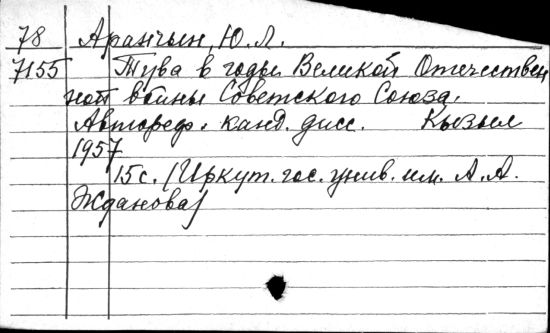 78 Аранчын, Ю. Л.
7155 Тува в годы Великой Отечествен
ной войны Советского Союза.
Автореф. канд. дисс. Кызыл
1957
15 с. (Иркут. гос. унив. им. А. А.
Жданова)